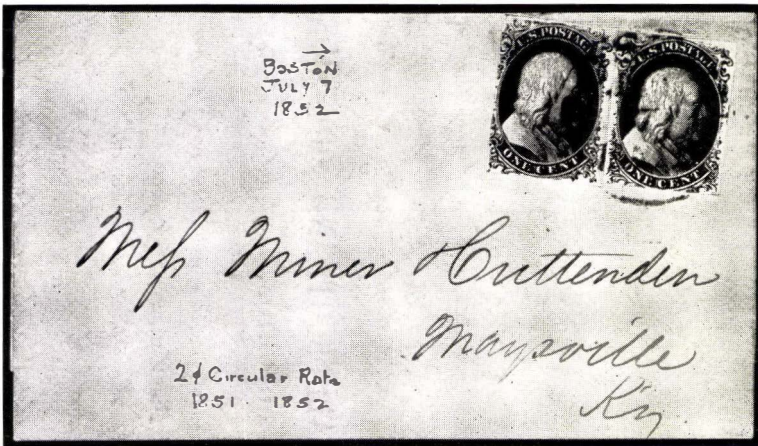 BOSTON
JULY 7
1852
U.S. POSTAGE
ONE CENT
U.S. POSTAGE
ONE CENT
Mess Miner Cruttenden
Maysville
Ky
2¢ Circular Rate
1851 1852